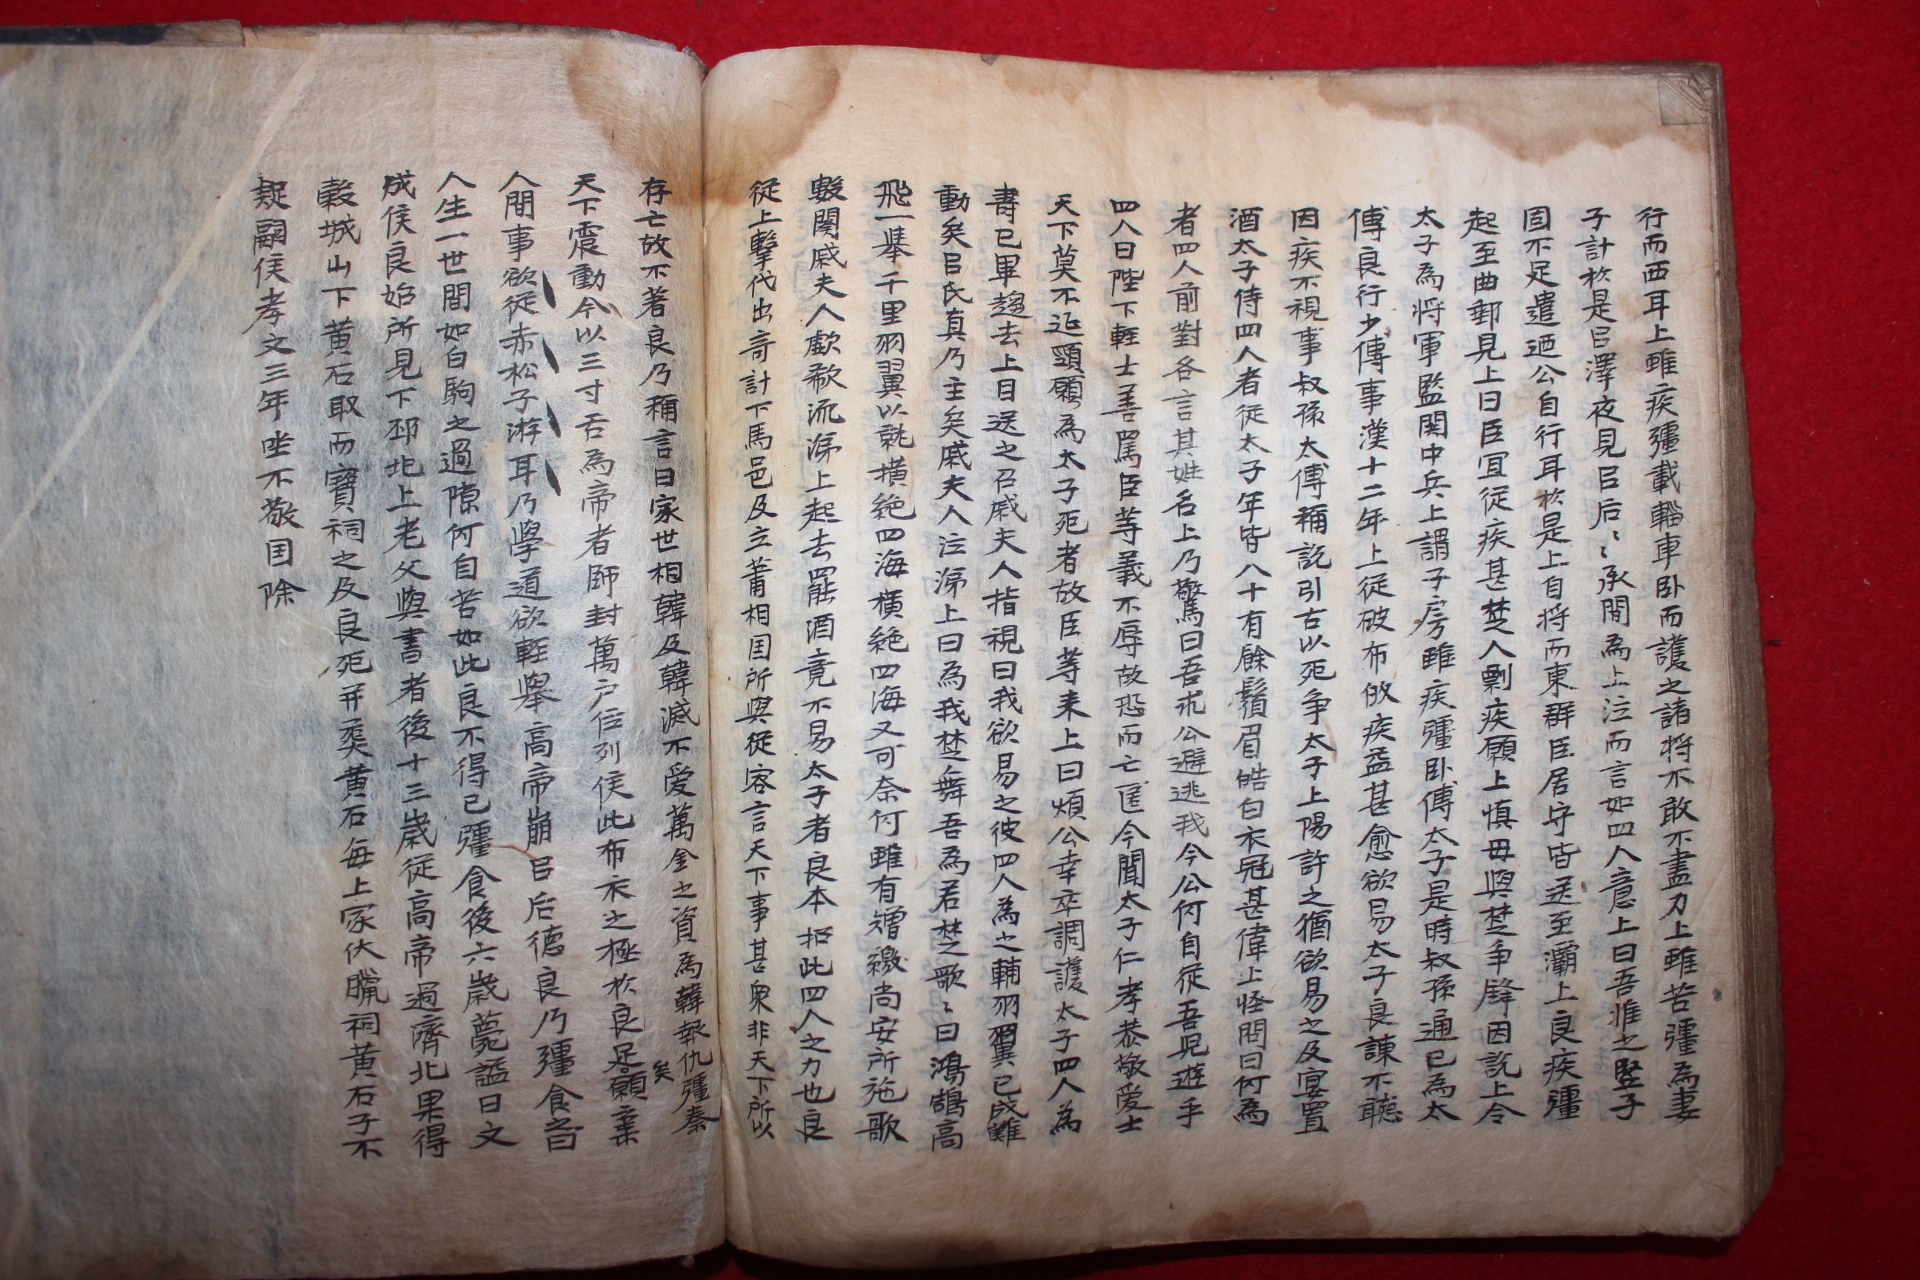 行而西耳上雖疾彊載輜車卧而護之諸將不敢不盡力上雖苦彊為妻
子計於是呂澤夜見呂后〻承間為上泣而言如四人意上曰吾惟之豎子
固不足遣迺公自行耳於是上自將而東群臣居守皆送至灞上良疾彊
起至曲郵見上曰臣宜從疾甚楚人剽疾願上慎毋與楚爭鋒因說上令
太子為將軍監関中兵上謂子房雖疾彊卧傅太子是時叔孫通已為太
傅良行少傅事漢十二年上從破布敀疾益甚愈欲易太子良諫不聽
因疾不視事叔孫太傅稱說引古以死争太子上陽許之猶欲易之及宴置
酒太子侍四人者從太子年皆八十有餘鬚眉皓白衣冠甚偉上怪問曰何為
者四人前對各言其姓名上乃驚曰吾求公避逃我今公何自從吾兒遊乎
四人曰陛下輕士善罵臣等義不辱故恐而亡匿今聞太子仁孝恭敬愛士
天下莫不延頸願為太子死者故臣等来上曰煩公幸卒調護太子四人為
壽已畢趨去上目送之召戚夫人指視曰我欲易之彼四人為之輔羽翼已成難
動矣呂氏真乃主矣戚夫人泣涕上曰為我楚舞吾為若楚歌〻曰鴻鵠高
飛一舉千里羽翼以就橫絶四海橫絶四海又可奈何雖有矰繳尚安所施歌
數闋戚夫人歔欷流涕上起去罷酒竟不易太子者良本招此四人之力也良
從上擊代出奇計下馬邑及立蕭相国所與從容言天下事甚衆非天下所以
存亡故不著良乃稱言曰家世相韓及韓滅不愛萬金之資為韓報仇彊秦
天下震動今以三寸舌為帝者師封萬户位列侯此布衣之極於良足矣願棄
人間事欲從赤松子游耳乃學道欲輕舉高帝崩呂后德良乃彊食音
人生一世間如白駒之過隙何自苦如此良不得已彊食後六歲薨謚曰文
成侯良始所見下邳圯上老父與書者後十三歲從高帝過濟北果得
穀城山下黄石取而寶祠之及良死并葬黄石每上冢伏臘祠黄石子不
疑嗣侯孝文三年坐不敬国除